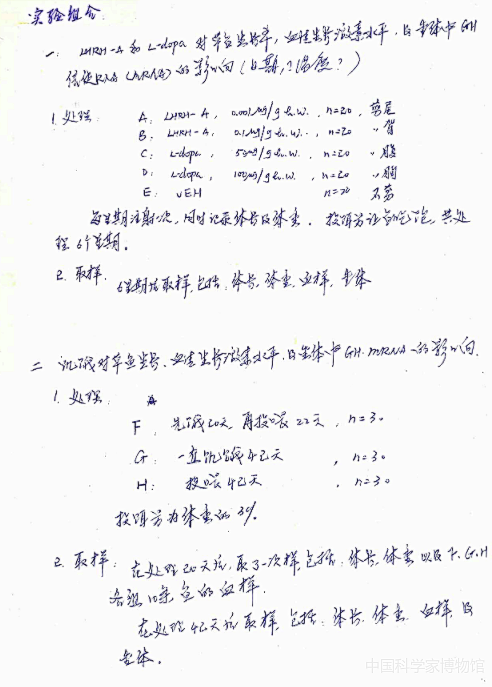 实验组合
一. LHRH-A 和 L-dopa 对草鱼生长率, 血清生长激素水平, 及垂体中 GH
信使RNA (mRNA) 的影响 (日期,?温度?)
1. 处理: A: LHRH-A, 0.001μg/g b.w., n=20, 剪尾
B: LHRH-A, 0.1μg/g b.w., n=20 〃 背
C: L-dopa, 5μg/g b.w. n=20 〃 腹
D: L-dopa, 100μg/g b.w. n=20 〃 胸
E: VEH n=20 不剪
每星期注射一次, 同时记录体长及体重. 投饵为让鱼吃饱, 共处
理 6个星期.
2. 取样. 6星期后取样, 包括: 体长, 体重, 血样, 垂体
二 饥饿对草鱼生长, 血清生长激素水平, 及垂体中 GH mRNA 的影响.
1. 处理:
F, 先饿20天, 再投喂22天, n=30
G: 一直饥饿42天, n=30
H: 投喂42天, n=30
投饵为体重的3%.
2. 取样: 在处理20天后, 取了一次样, 包括: 体长, 体重 以及 F.G.H
各组10条鱼的血样.
在处理42天后取样, 包括: 体长, 体重, 血样, 及
垂体.
中国科学家博物馆